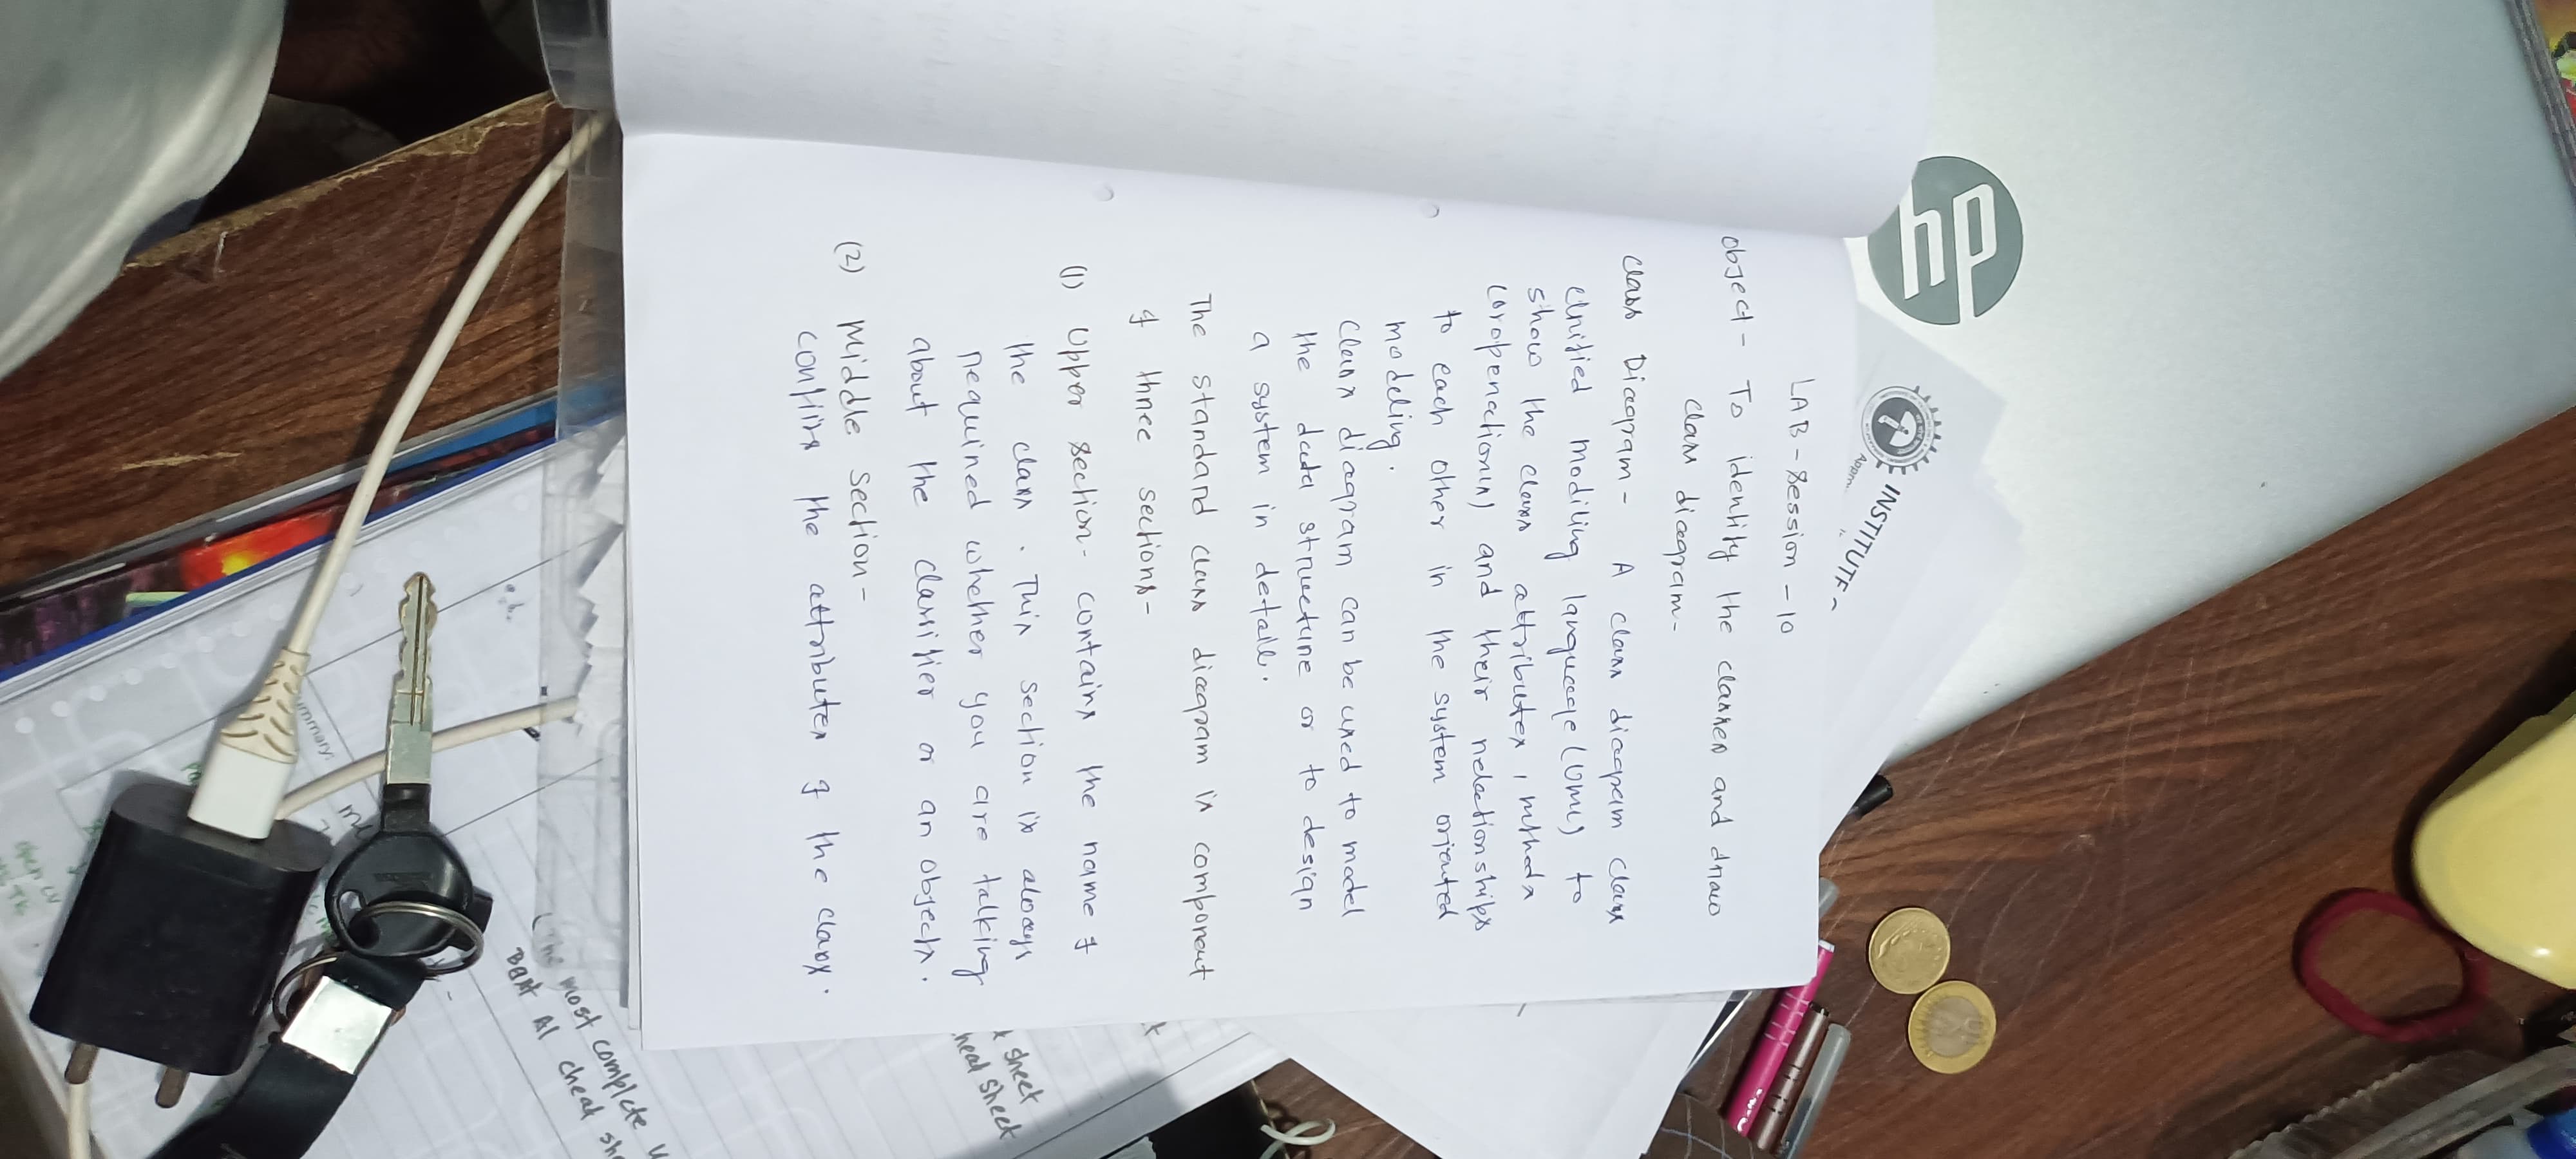 LAB - Session - 10
Object - To identity the classes and draw
class diagram -
Class Diagram - A class diagram class
Unified modiling language (UML) to
show the class attributes, methods
(oropenactionis) and their relationships
to each other in the system oriented
modeling.
Class diagram can be used to model
the data structure or to design
a system in detail.
The standard class diagram is component
of three sections -
(1) Upper section - contains the name of
the class . This section is always
required whether you are talking
about the classifier or an object.
(2) Middle section -
contins the attributes of the class.
hp
INSTITUTE
Appro
ummary
(The most complete
Best AI cheat she
sheet
head sheet